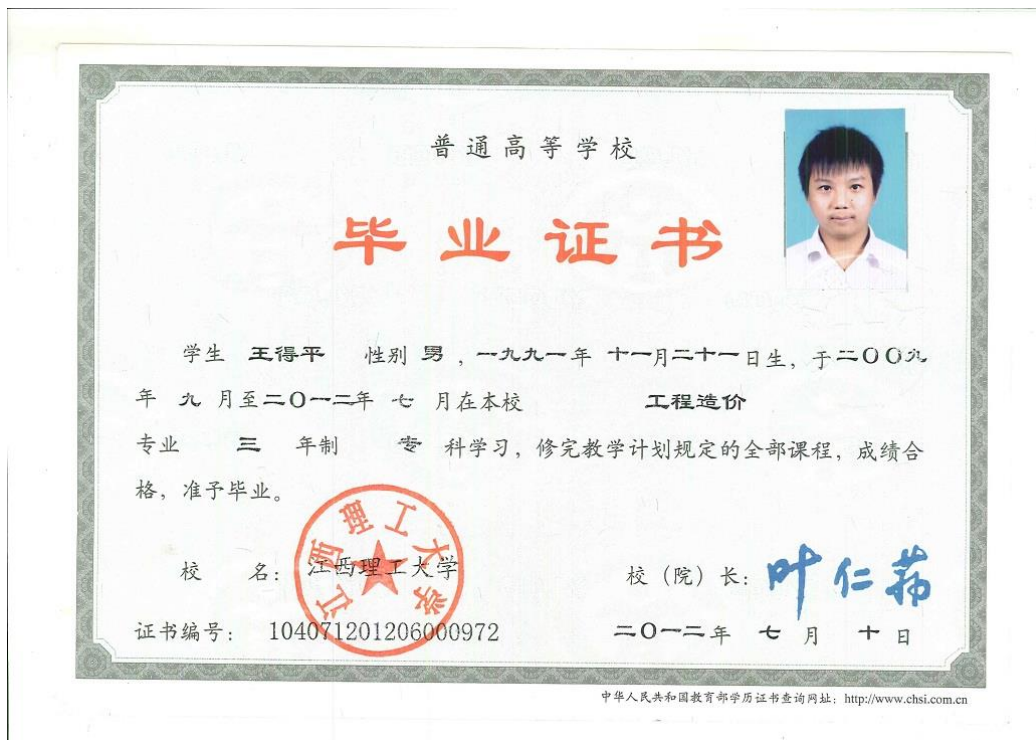 普通高等学校
毕业证书
学生 王得平 性别 男，一九九一年 十一月二十一日生，于二〇〇九
年 九 月至二〇一二年 七 月在本校 工程造价
专业 三 年制 专 科学习，修完教学计划规定的全部课程，成绩合
格，准予毕业。
江西理工大学
校 名：江西理工大学
校（院）长：叶仁荪
证书编号：104071201206000972
二〇一二年 七 月 十 日
中华人民共和国教育部学历证书查询网址：http://www.chsi.com.cn